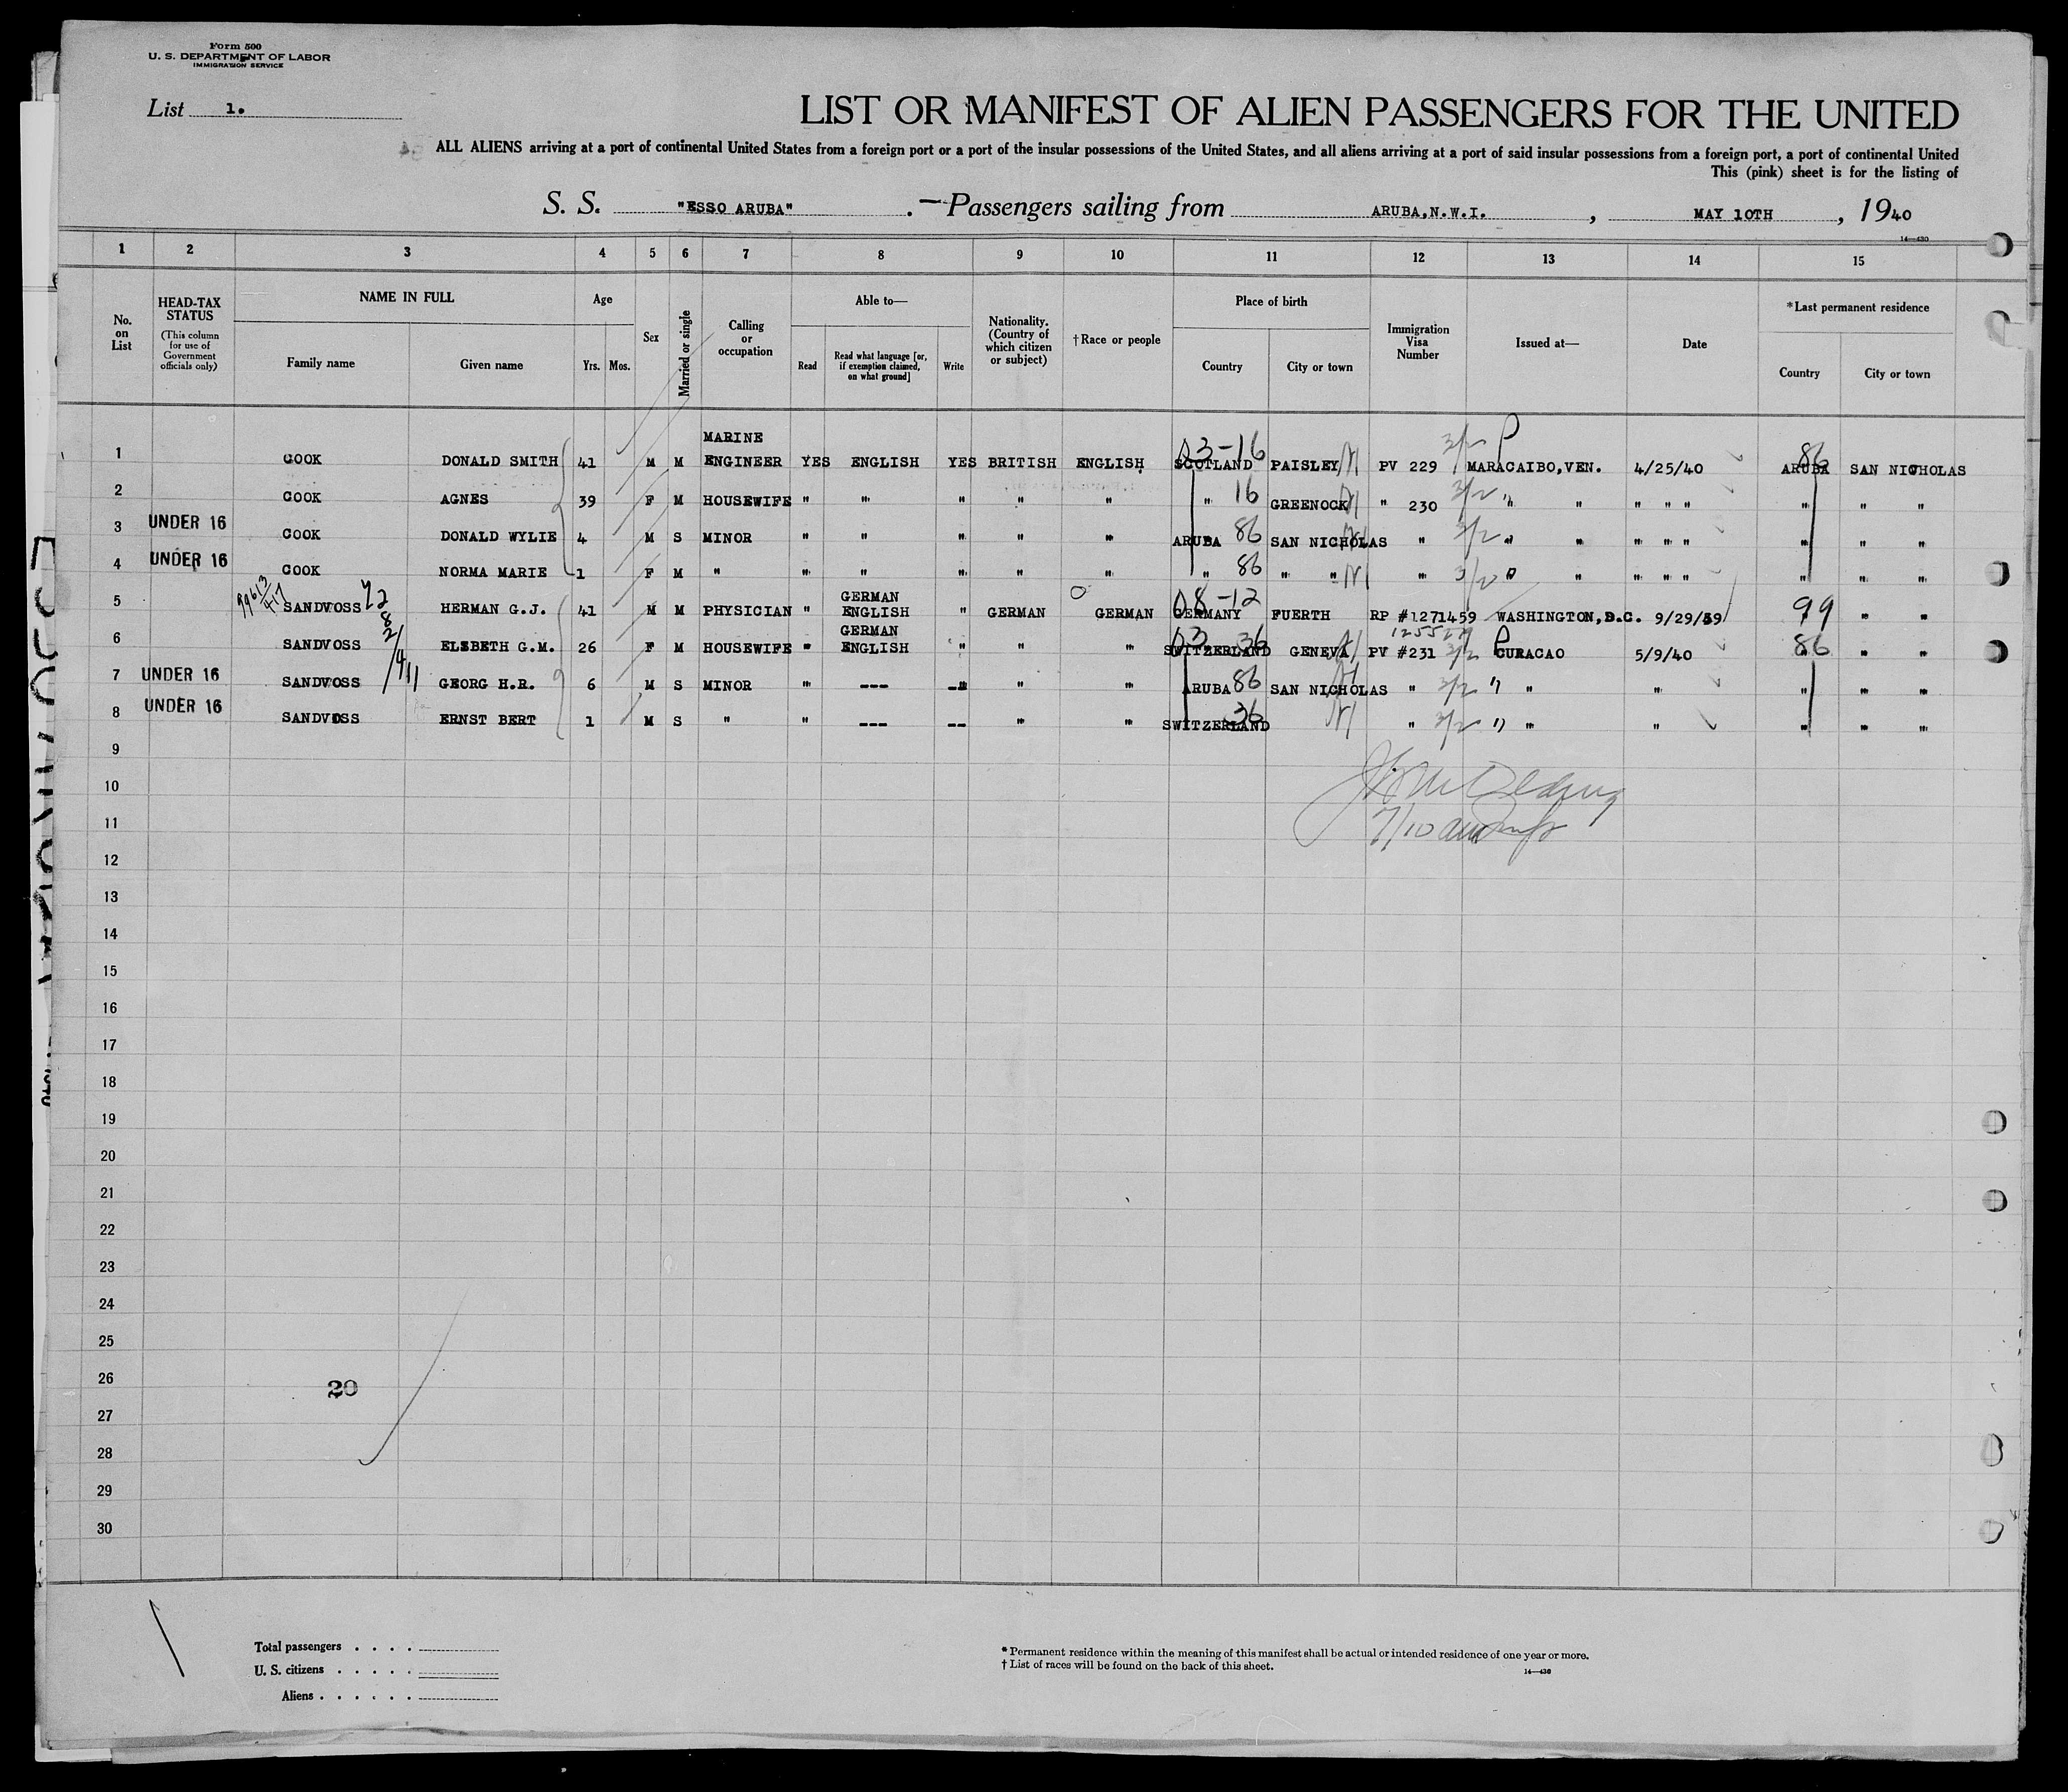 Form 500
U. S. DEPARTMENT OF LABOR
IMMIGRATION SERVICE
List 1.
LIST OR MANIFEST OF ALIEN PASSENGERS FOR THE UNITED
ALL ALIENS arriving at a port of continental United States from a foreign port or a port of the insular possessions of the United States, and all aliens arriving at a port of said insular possessions from a foreign port, a port of continental United
This (pink) sheet is for the listing of
S. S. "ESSO ARUBA" . — Passengers sailing from ARUBA,N.W.I. , MAY 10TH , 1940
14—430
1 2 3 4 5 6 7 8 9 10 11 12 13 14 15
No. on List
HEAD-TAX STATUS
(This column for use of Government officials only)
NAME IN FULL
Family name Given name
Age
Yrs. Mos.
Sex
Married or single
Calling or occupation
Able to—
Read
Read what language [or, if exemption claimed, on what ground]
Write
Nationality. (Country of which citizen or subject)
†Race or people
Place of birth
Country City or town
Immigration Visa Number
Issued at—
Date
*Last permanent residence
Country City or town
1 COOK DONALD SMITH 41 M M MARINE ENGINEER YES ENGLISH YES BRITISH ENGLISH SCOTLAND D3-16 PAISLEY PV 229 3/2 P MARACAIBO,VEN. 4/25/40 ARUBA 86 SAN NICHOLAS
2 COOK AGNES 39 F M HOUSEWIFE " " " " " " 16 GREENOCK " 230 3/2 " " " " " " " "
3 UNDER 16 COOK DONALD WYLIE 4 M S MINOR " " " " " ARUBA 86 SAN NICHOLAS " 3/2 " " " " " " " "
4 UNDER 16 COOK NORMA MARIE 1 F M " " " " " " " 86 " " " 3/2 " " " " " " " "
5 99613 SANDVOSS HERMAN G.J. 41 M M PHYSICIAN " GERMAN ENGLISH " GERMAN GERMAN GERMANY D8-12 FUERTH RP #1271459 WASHINGTON,D.C. 9/29/39 99 " "
6 SANDVOSS ELSBETH G.M. 26 F M HOUSEWIFE " GERMAN ENGLISH " " " SWITZERLAND D3 36 GENEVA PV #231 3/2 P CURACAO 5/9/40 86 " "
7 UNDER 16 SANDVOSS GEORG H.R. 6 M S MINOR " --- --" " " ARUBA 86 SAN NICHOLAS " 3/2 " " " " " "
8 UNDER 16 SANDVOSS ERNST BERT 1 M S " " --- -- " " SWITZERLAND 36 " 3/2 " " " " " "
9
10
11
12
13
14
15
16
17
18
19
20
21
22
23
24
25
26
27
28
29
30
20
Total passengers . . . .
U. S. citizens . . . . .
Aliens . . . . . .
* Permanent residence within the meaning of this manifest shall be actual or intended residence of one year or more.
† List of races will be found on the back of this sheet.
14—430